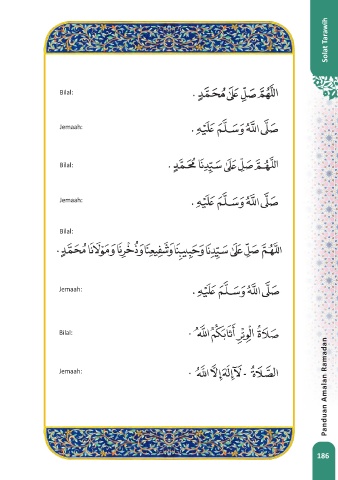 Solat Tarawih
Bilal:
اَللَّهُمَّ صَلِّ عَلَى مُحَمَّدٍ .
Jemaah:
صَلَّى اللَّهُ وَسَلَّمَ عَلَيْهِ .
Bilal:
اَللَّهُمَّ صَلِّ عَلَى سَيِّدِنَا مُحَمَّدٍ .
Jemaah:
صَلَّى اللَّهُ وَسَلَّمَ عَلَيْهِ .
Bilal:
اَللَّهُمَّ صَلِّ عَلَى سَيِّدِنَا وَحَبِيبِنَا وَشَفِيعِنَا وَذُخْرِنَا وَمَوْلَانَا مُحَمَّدٍ .
Jemaah:
صَلَّى اللَّهُ وَسَلَّمَ عَلَيْهِ .
Bilal:
صَلَاةُ الْوِتْرِ أَثَابَكُمُ اللَّهُ .
Jemaah:
الصَّلَاةُ . لَآ إِلَهَ إِلَّا اللَّهُ .
Panduan Amalan Ramadan
186